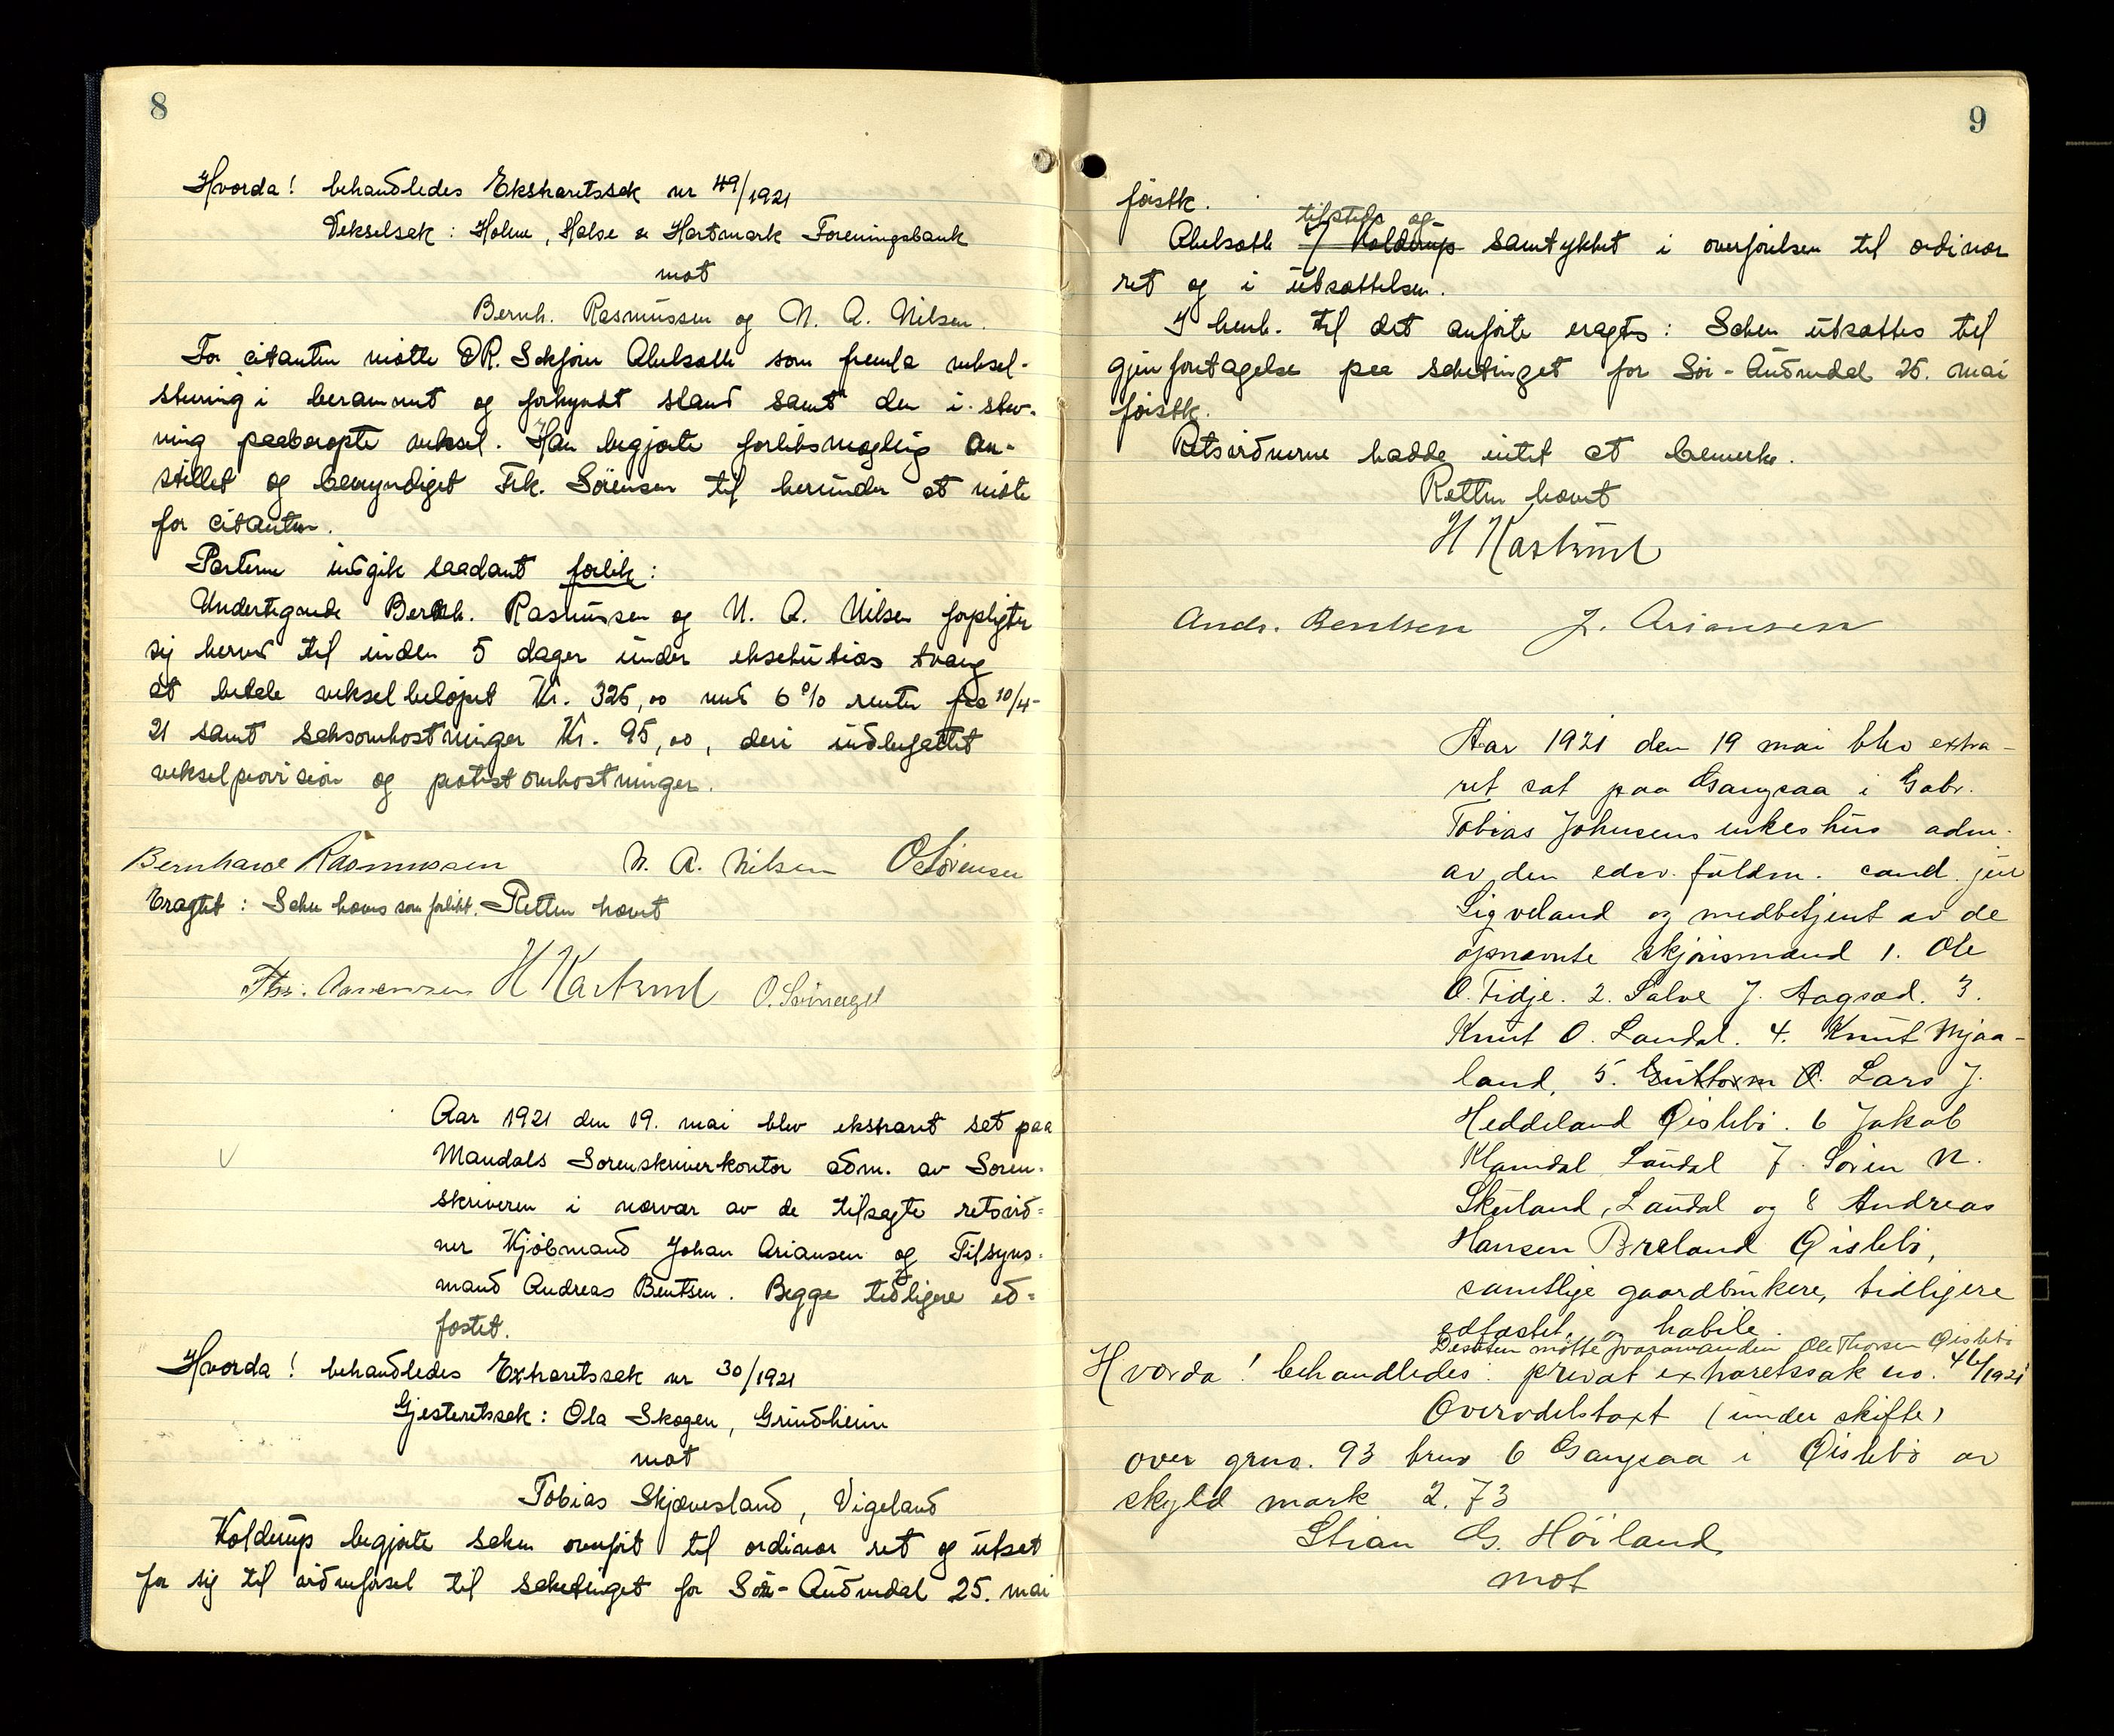 8
Hvorda! behandledes Ekstraretssak nr 49/1921
Vekselsak: Holme, Halse & Hartmark Foreningsbank
mot
Bernh. Rasmussen og N. A. Nilsen.
For citanten møtte OR. Sakfører Abelsæth som fremla veksel-
stevning i berammet og forkyndt stand samt den i stev-
ning paaberopte veksel. Han begjærte forliksmægling an-
stillet og bemyndiget Frk. Sörensen til herunder at møte
for citanten.
Parterne indgik saadant forlik:
Undertegnede Bernh. Rasmussen og N. A. Nilsen forpligter
sig herved til inden 5 dager under eksekutions tvang
at betale vekselbeløpet Kr. 325,00 med 6 % renter fra 10/4-
21 samt saksomkostninger Kr. 95,00, deri indbefattet
vekselprovision og protestomkostninger.
Bernhard Rasmussen N. A. Nilsen O Sörensen
Eragtet: Saken hæves som forlikt. Retten hævet
H Kastrud
Aar 1921 den 19. mai blev ekstraret sat paa
Mandals Sorenskriverkontor adm. av Soren-
skriveren i nærvær av de tilsagte retsvid-
ner Kjöbmand Johan Ariansen og Tilsyns-
mand Andreas Bentsen. Begge tidligere ed-
fæstet.
Hvorda! behandledes Extraretssak nr 30/1921
Gjesteretssak: Ola Skogen, Grindheim
mot
Tobias Skjævesland, Vigeland
Kolderup begjærte saken overført til ordinær ret og utsat
for sig til vidneførsel til saketinget for Sör-Audnedal 25. mai
9
førstk.
tilstede og
Abelsæth / Kolderup samtykket i overførelsen til ordinær
ret og i utsættelsen.
I henh. til det anførte eragtes: Saken utsættes til
gjenforetagelse paa saketinget for Sör-Audnedal 25. mai
førstk.
Retsvidnerne hadde intet at bemerke.
Retten hævet
H Kastrud
Andr. Bentsen J. Ariansen
Aar 1921 den 19 mai blev extra-
ret sat paa Gangsaa i Gabr.
Tobias Johnsens enkes hus adm.
av den edsv. fuldm. cand. jur
Sigveland og medbetjent av de
opnævnte skjønsmænd 1. Ole
O. Tidje. 2. Salve J. Aagsæd. 3.
Knut O. Laudal. 4. Knut Mjaa-
land, 5. Guttorm O. Lars J.
Heddeland Øislebö. 6 Jakob
Klamdal Laudal 7. Sören N.
Skuland, Laudal og 8 Andreas
Hansen Breland Øislebö,
samtlige gaardbrukere, tidligere
edfæstet, og habile.
Desuten møtte varamanden Ole Thorsen Øislebö
Hvorda! behandledes: privat extraretssak no. 46/1921
Overodelstaxt (under skifte)
over grno. 93 brno 6 Gangsaa i Øislebö av
skyld mark 2.73
Stian G. Höiland
mot